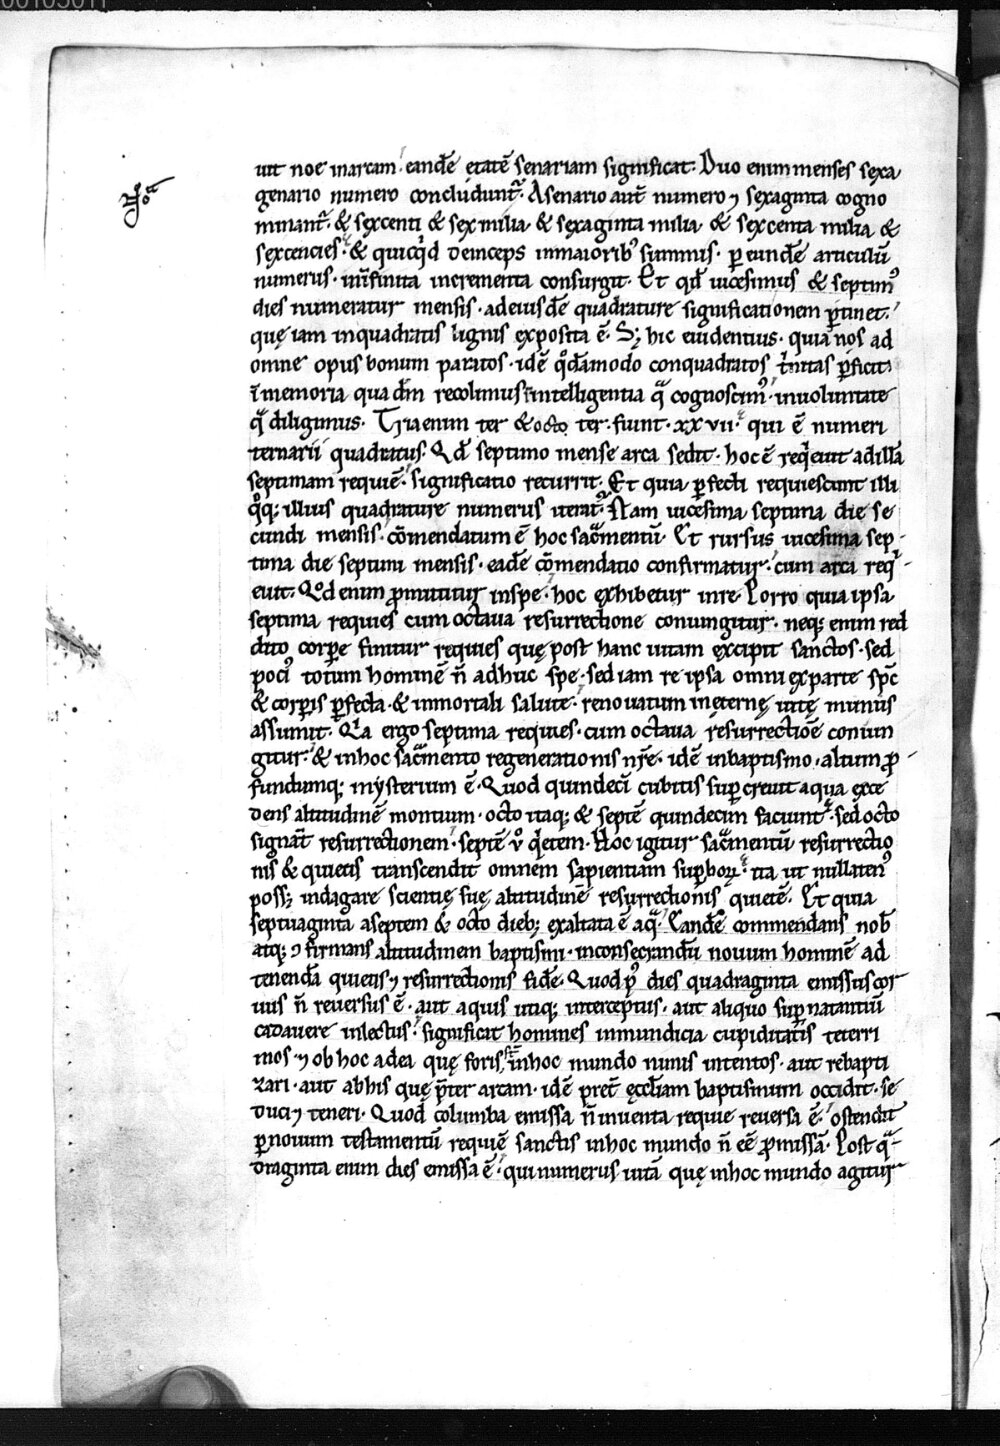 uit noe inarcam. eandē etatē senariam significat. Duo enim menses sexa
genario numero concludunt᷑. Asenario aut̄ numero ⁊ sexaginta cogno
minant᷑. & sexcenti & sex milia & sexaginta milia & sexcenta milia &
sexcencies. & quicq̇d deinceps inmaiorib᷒ summis. ꝑ eundē articulū
numerus. ininfinita incrementa consurgit. Et qd̄ uicesimus & septim᷒
dies numeratur mensis. adeiusdē quadrature significationem ꝑtinet.
quę iam inquadratis lignis exposita ē. S; hic euidentius. quia nos ad
omne opus bonum paratos. idē q̊dāmodo conquadratos t̓nitas ꝑficit.
ī memoria qua dm̄ recolimus. inintelligentia qᷓ cognoscim᷒. inuoluntate
qᷓ diligimus. Tria enim ter & octo ter. fiunt. xx vii. qui ē numeri
ternarii quadratus. Qd̄ septimo mense arca sedit. hoc ē req̇euit adillā
septimam requiē. significatio recurrit. Et quia ꝑfecti requiescunt illi
q̊q; illius quadrature numerus iterat᷑. Nam uicesima septima die se
cundi mensis. cōmendatum ē hoc sacᷓmentū. Et rursus uicesima sep
tima die septimi mensis. eadē cōmendatio confirmatur. cum arca req̇
euit. Qd̄ enim ꝓmittitur inspe. hoc exhibetur inre. Porro quia ipsa
septima requies cum octaua resurrectione coniungitur. neq; enim red
dito corꝑe finitur requies quę post hanc uitam excipit sanctos. sed
poci᷒ totum hominē n̄ adhuc spe. sed iam re ipsa omni exparte spc̄
& corꝑis ꝑfecta. & inmortali salute. renouatum ineternę uitę munus
assumit. Qᷓa ergo septima requies. cum octaua resurrectiōe coniun
gitur. & inhoc sacᷓmento regenerationis nr̄e. idē inbaptismo. altum ꝓ
fundumq; mysterium ē. Quod quindecī cubitis suꝑcreuit aqua exce
dens altitudinē montium. octo itaq; & septē quindecim faciunt. sed octo
signāt resurrectionem. septē v̊ q̇etem. Hoc igitur sacᷓmentū resurrectio
nis & quietis transcendit omnem sapientiam suꝑboꝝ. ita ut nullaten᷒
poss; indagare scientię suę altitudinē resurrectionis quietē. Et quia
septuaginta aseptem & octo dieb; exaltata ē aqᷓ. Eandē commendans nob̄
atq; ⁊ firmans altitudinem baptismi. inconsecrandū nouum hominē ad
tenendā quietis ⁊ resurrectionis fidē. Quod p᷒ dies quadraginta emissus cor
uus n̄ reuersus ē. aut aquis utiq; interceptus. aut aliquo suꝑnatantiū
cadauere inlectus. significat homines inmundicia cupiditatis teterri
mos ⁊ ob hoc adea quę foris st̄ inhoc mundo nimis intentos. aut rebapti
zari. aut abhis quę p̄ter arcam. idē preter̄ ęccl̄iam baptismum occidit. se
duci ⁊ teneri. Quod columba emissa n̄ inuenta requie reuersa ē. ostendit
ꝑ nouum testamentū requiē sanctis inhoc mundo n̄ eē ꝓmissā. Post qᷓ
draginta enim dies emissa ē. qui numerus uitā quę inhoc mundo agitur